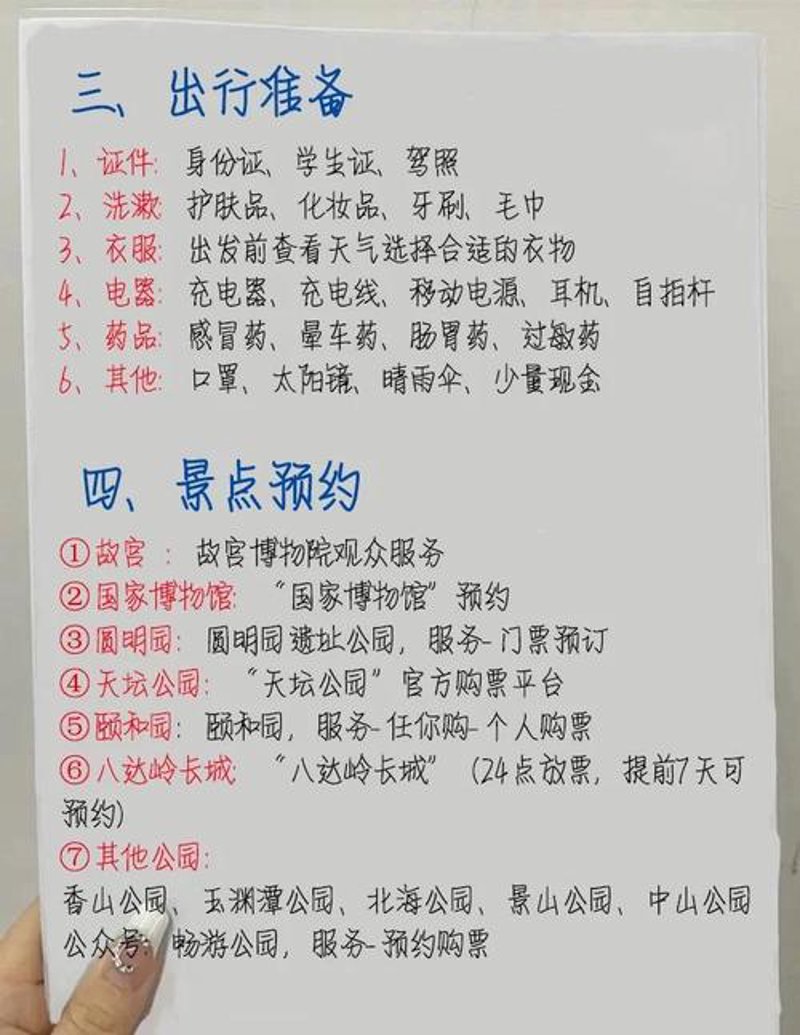 三、出行准备
1、证件: 身份证、学生证、驾照
2、洗漱: 护肤品、化妆品、牙刷、毛巾
3、衣服: 出发前查看天气选择合适的衣物
4、电器: 充电器、充电线、移动电源、耳机、自拍杆
5、药品: 感冒药、晕车药、肠胃药、过敏药
6、其他: 口罩、太阳镜、晴雨伞、少量现金
四、景点预约
①故宫 : 故宫博物院观众服务
②国家博物馆: “国家博物馆”预约
③圆明园: 圆明园遗址公园, 服务-门票预订
④天坛公园: “天坛公园”官方购票平台
⑤颐和园: 颐和园, 服务-任你购-个人购票
⑥八达岭长城: “八达岭长城” (24点放票, 提前7天可
预约)
⑦其他公园:
香山公园、玉渊潭公园、北海公园、景山公园、中山公园
公众号: 畅游公园, 服务-预约购票